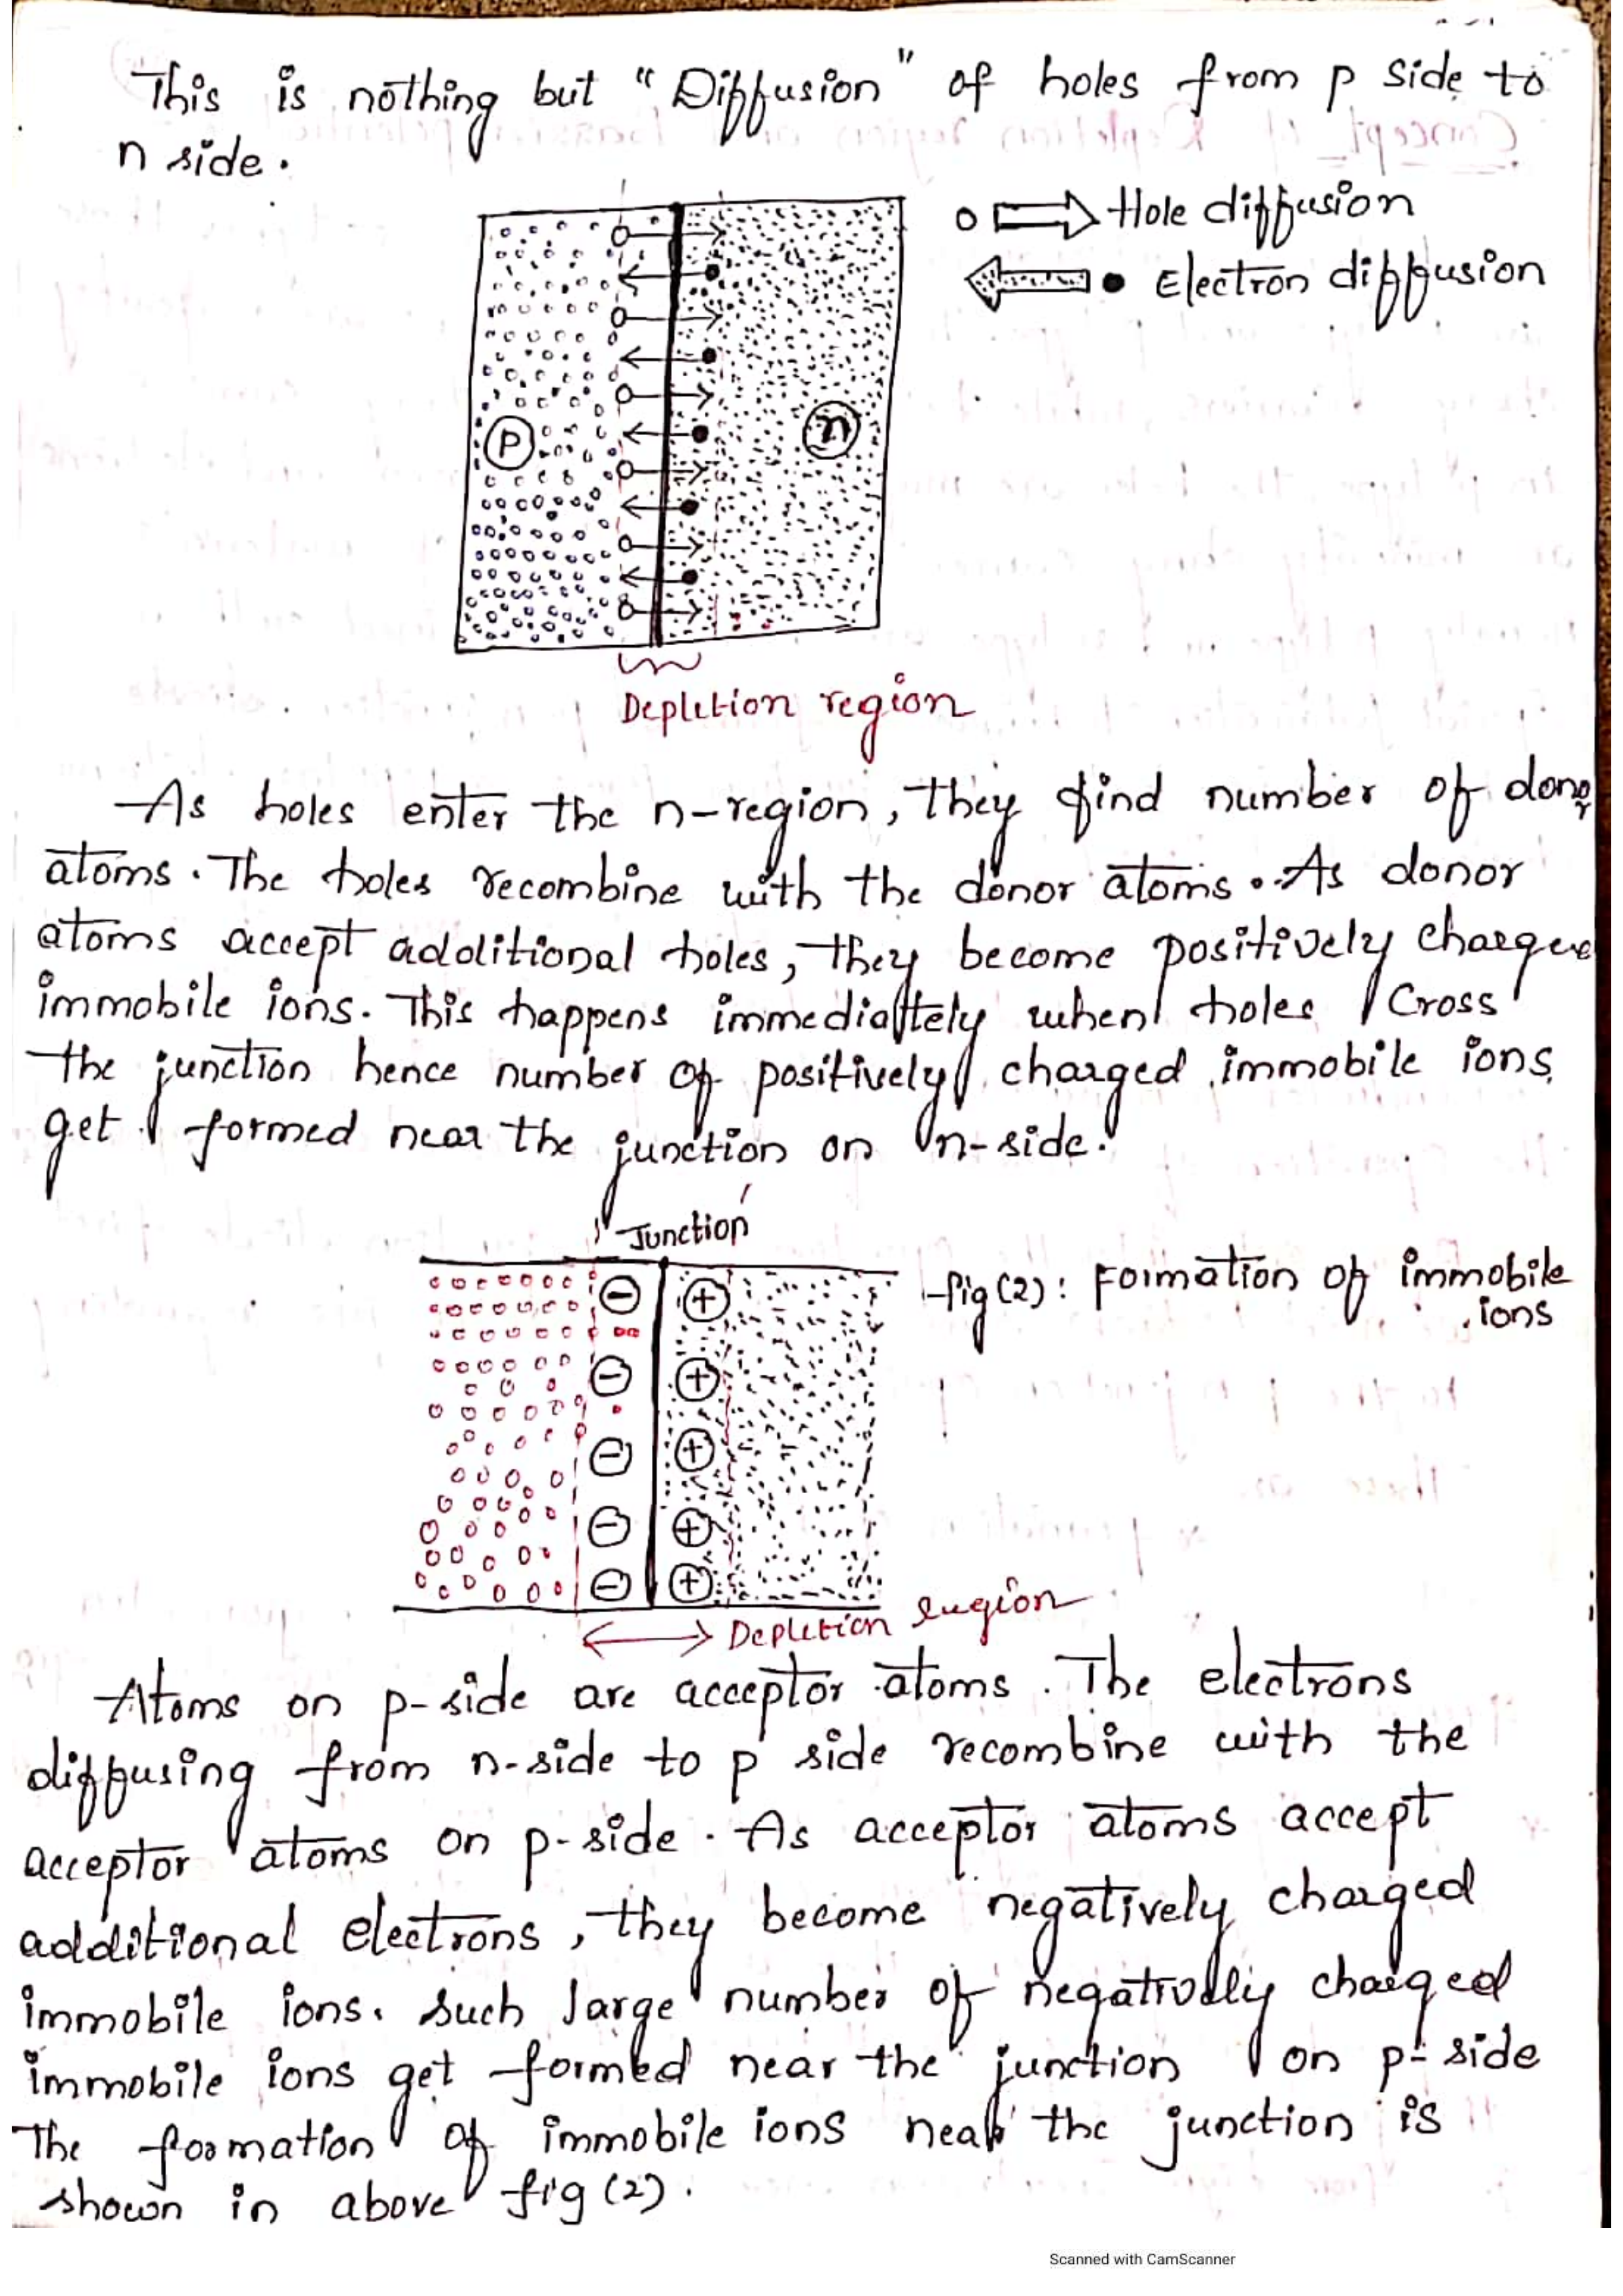 This is nothing but "Diffusion" of holes from p side to
n side.
Hole diffusion
Electron diffusion
P
n
Depletion region
As holes enter the n-region, they find number of donor
atoms. The holes recombine with the donor atoms. As donor
atoms accept additional holes, they become positively charged
immobile ions. This happens immediattely when holes Cross
the junction hence number of positively charged immobile ions
get formed near the junction on n-side.
Junction
fig (2): Formation of immobile
ions
Depletion region
Atoms on p-side are acceptor atoms. The electrons
diffusing from n-side to p side recombine with the
acceptor atoms on p-side. As acceptor atoms accept
additional electrons, they become negatively charged
immobile ions. such large number of negatively charged
immobile ions get formed near the junction on p-side
The formation of immobile ions near the junction is
shown in above fig (2).
Scanned with CamScanner